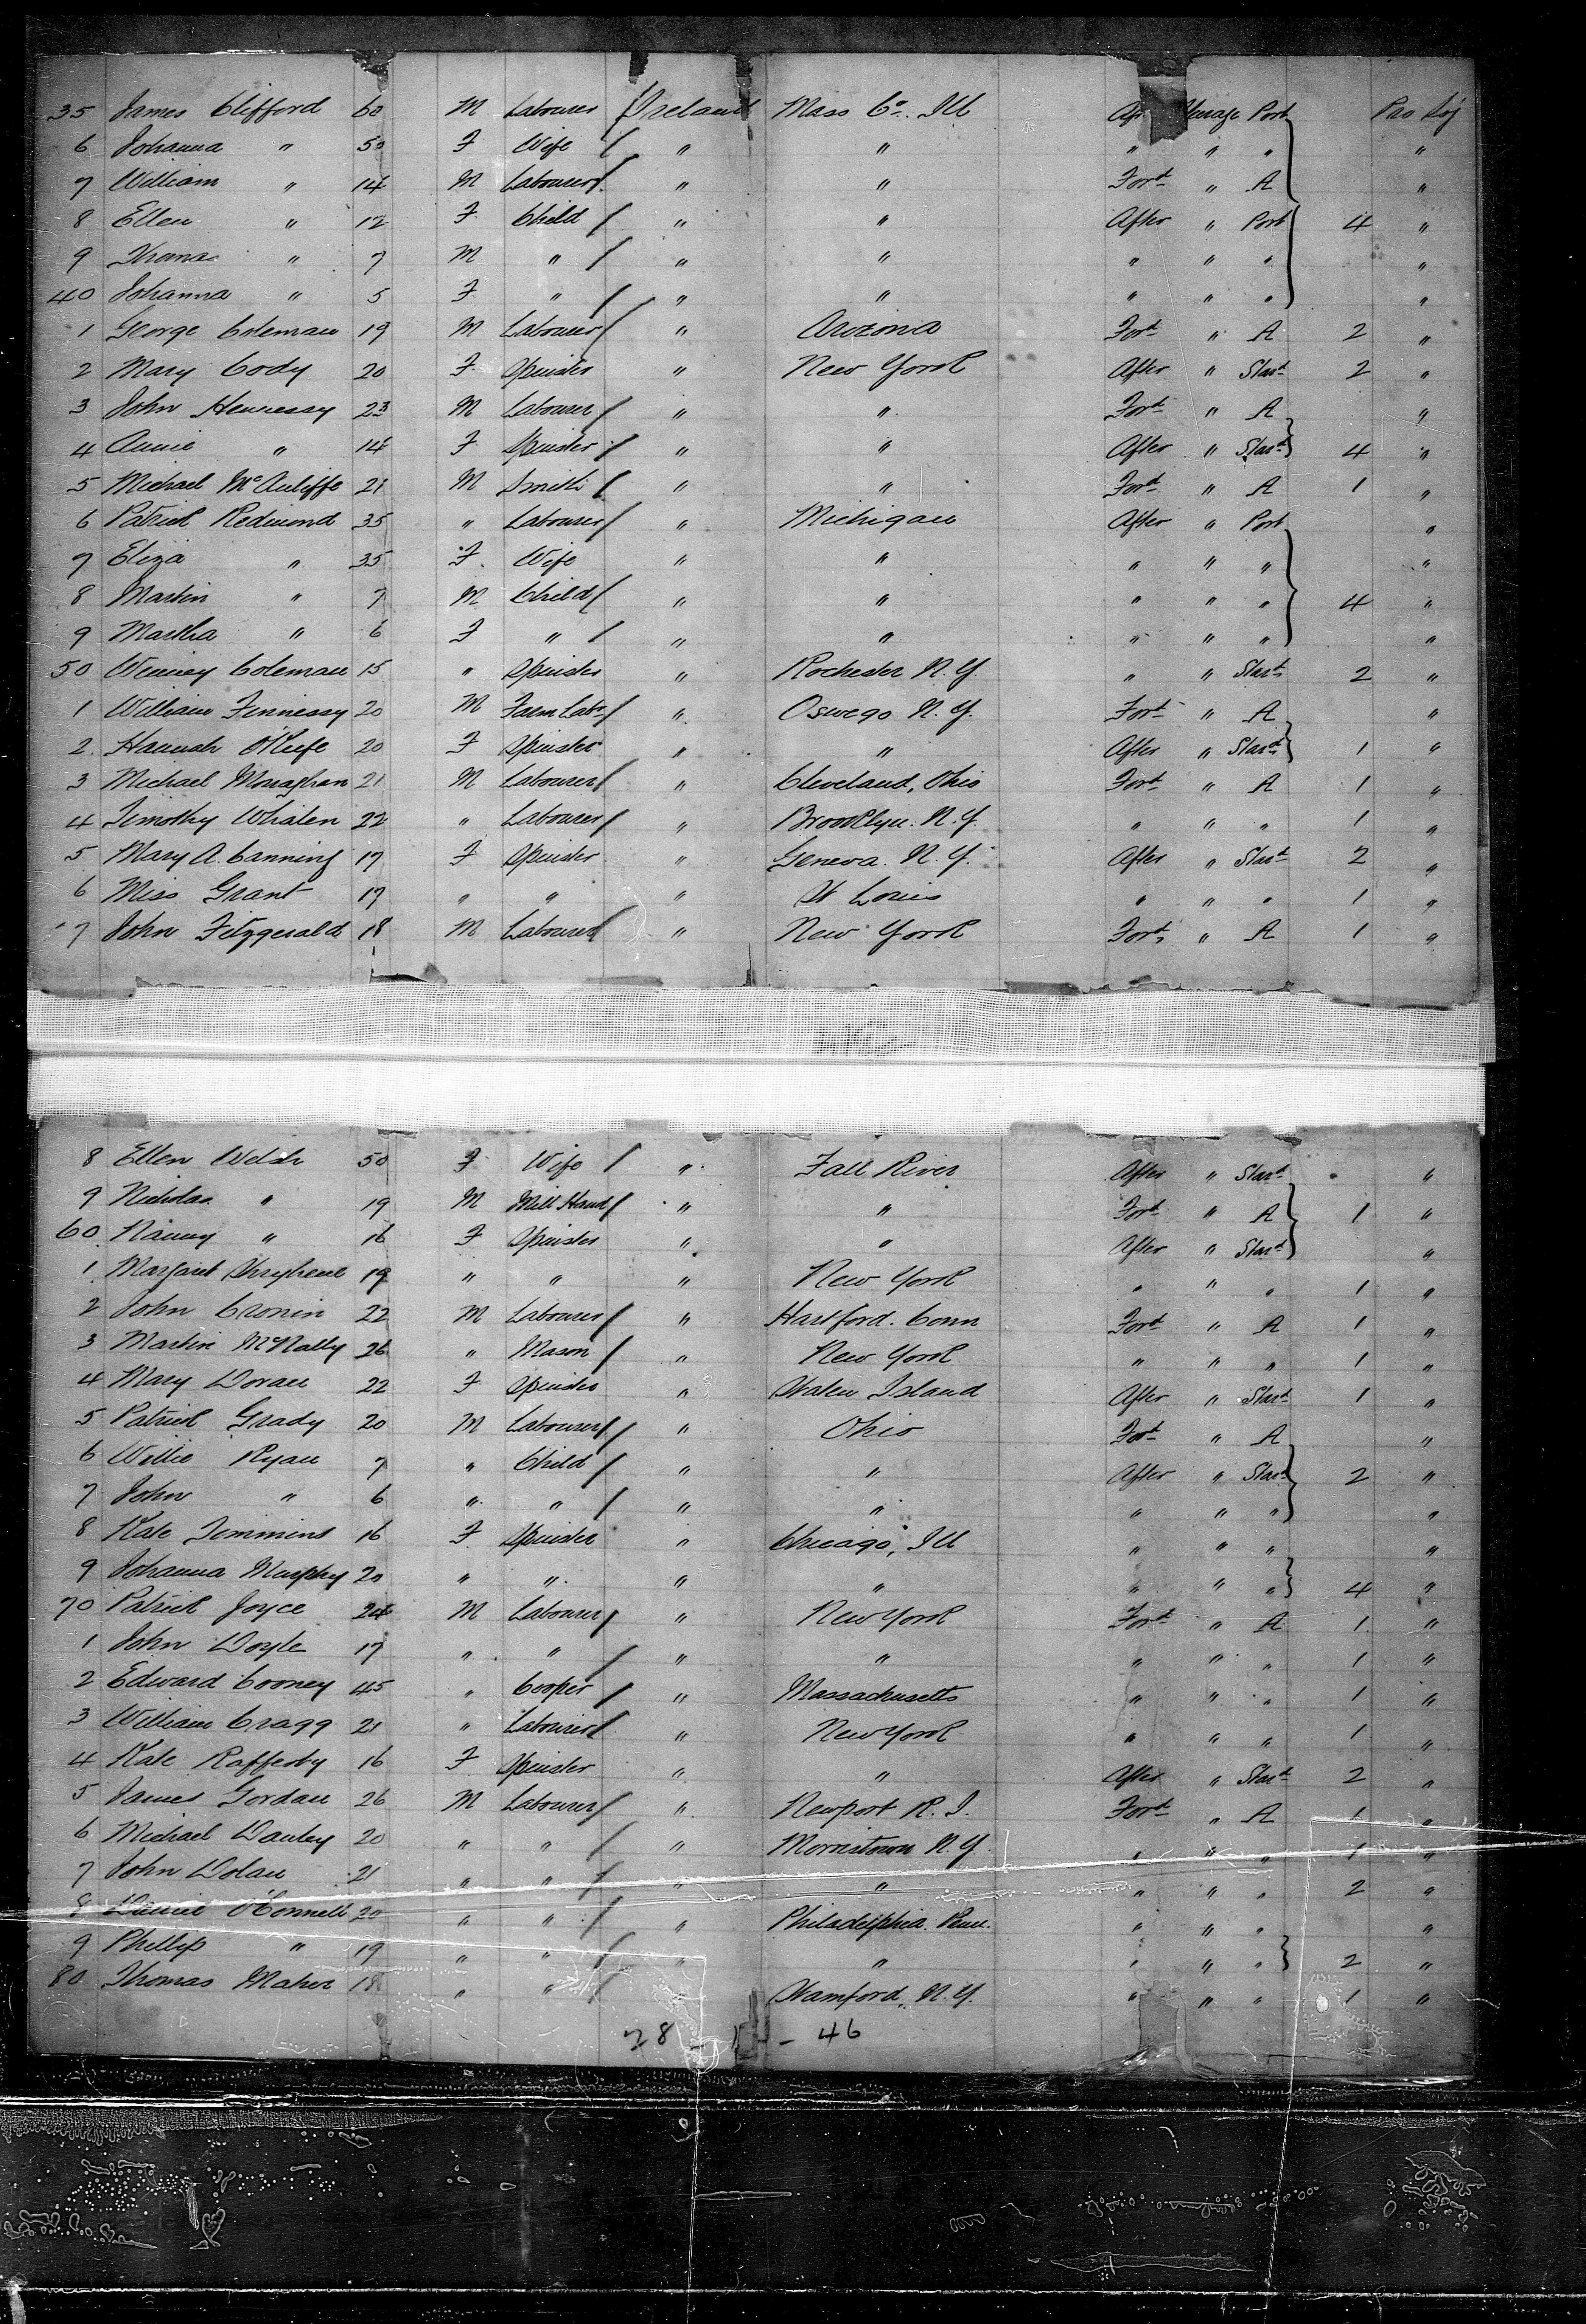 35 James Clifford 60 M Labourer Ireland Mass Co. Ill Af Steerage Port Pro Soj
6 Johanna " 50 F Wife " " " " " "
7 William " 14 M Labourer " " Ford " A "
8 Ellen " 12 F Child " " After " Port 4 "
9 " 7 M " " " " " " "
40 Johanna " 5 F " " " " " " "
1 George Coleman 19 M Labourer " Arizona Ford " A 2 "
2 Mary Cody 20 F Spinster " New York After " Stard 2 "
3 John Hennessy 23 M Labourer " " Ford " A "
4 Annie " 14 F Spinster " " After " Stard 4 "
5 Michael McAuliffe 21 M Smith " " Ford " A 1 "
6 Patrick Redmond 35 " Labourer " Michigan After " Port "
7 Eliza " 35 F Wife " " " " " "
8 Martin " 7 M Child " " " " " 4 "
9 Martha " 6 F " " " " " " "
50 Winney Coleman 15 " Spinster " Rochester N.Y. " " Stard 2 "
1 William Finnessy 20 M Farm Labr " Oswego N.Y. Ford " A "
2 Hannah O'Keefe 20 F Spinster " " After " Stard 1 "
3 Michael Monaghan 21 M Labourer " Cleveland, Ohio Ford " A 1 "
4 Timothy Whalen 22 " Labourer " Brooklyn. N.Y. " " " 1 "
5 Mary A. Canning 17 F Spinster " Geneva. N.Y. After " Stard 2 "
6 Miss Grant 17 " " " St Louis " " " 1 "
7 John Fitzgerald 18 M Labourer " New York Ford " A 1 "
8 Ellen Welsh 50 F Wife " Fall River After " Stard "
9 Nicholas " 19 M Mill Hand " " Ford " A 1 "
60 Nanny " 16 F Spinster " " After " Stard "
1 Margaret 19 " " " New York " " " 1 "
2 John Cronin 22 M Labourer " Hartford. Conn Ford " A 1 "
3 Martin McNally 26 " Mason " New York " " " 1 "
4 Mary Doran 22 F Spinster " Staten Island After " Stard 1 "
5 Patrick Grady 20 M Labourer " Ohio Ford " A "
6 Willie Ryan 7 " Child " " After " Stard 2 "
7 John " 6 " " " " " " " "
8 Kate Timmins 16 F Spinster " Chicago, Ill " " " "
9 Johanna Murphy 20 " " " " " " " 4 "
70 Patrick Joyce 24 M Labourer " New York Ford " A 1 "
1 John Doyle 17 " " " " " " " 1 "
2 Edward Cooney 45 " Cooper " Massachusetts " " " 1 "
3 William Cragg 21 " Labourer " New York " " " 1 "
4 Kate Rafferty 16 F Spinster " " After " Stard 2 "
5 James Gordan 26 M Labourer " Newport R.I. Ford " A 1 "
6 Michael Danley 20 " " " Morristown N.Y. " " " 1 "
7 John Dolan 21 " " " " " " " 2 "
8 Daniel O'Connell 20 " " " Philadelphia. Penn. " " " "
9 Phillip " 19 " " " " " " " 2 "
80 Thomas Maher 18 " " Stamford, N.Y. " " " 1 "
28 - 46